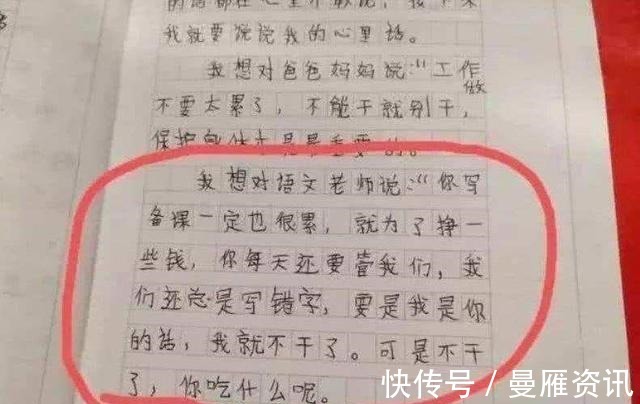 的话都在心里不敢说，我下来
我就要说说我的心里话。
我想对爸爸妈妈说："工作做
不要太累了，不能干就别干，
保护身体才是最重要的。
我想对语文老师说："你写
备课一定也很累，就为了挣一
些钱，你每天还要管我们，我
们还总是写错字，要是我是你
的话，我就不干了。可是不干
了，你吃什么呢。
快传号／曼雁资讯